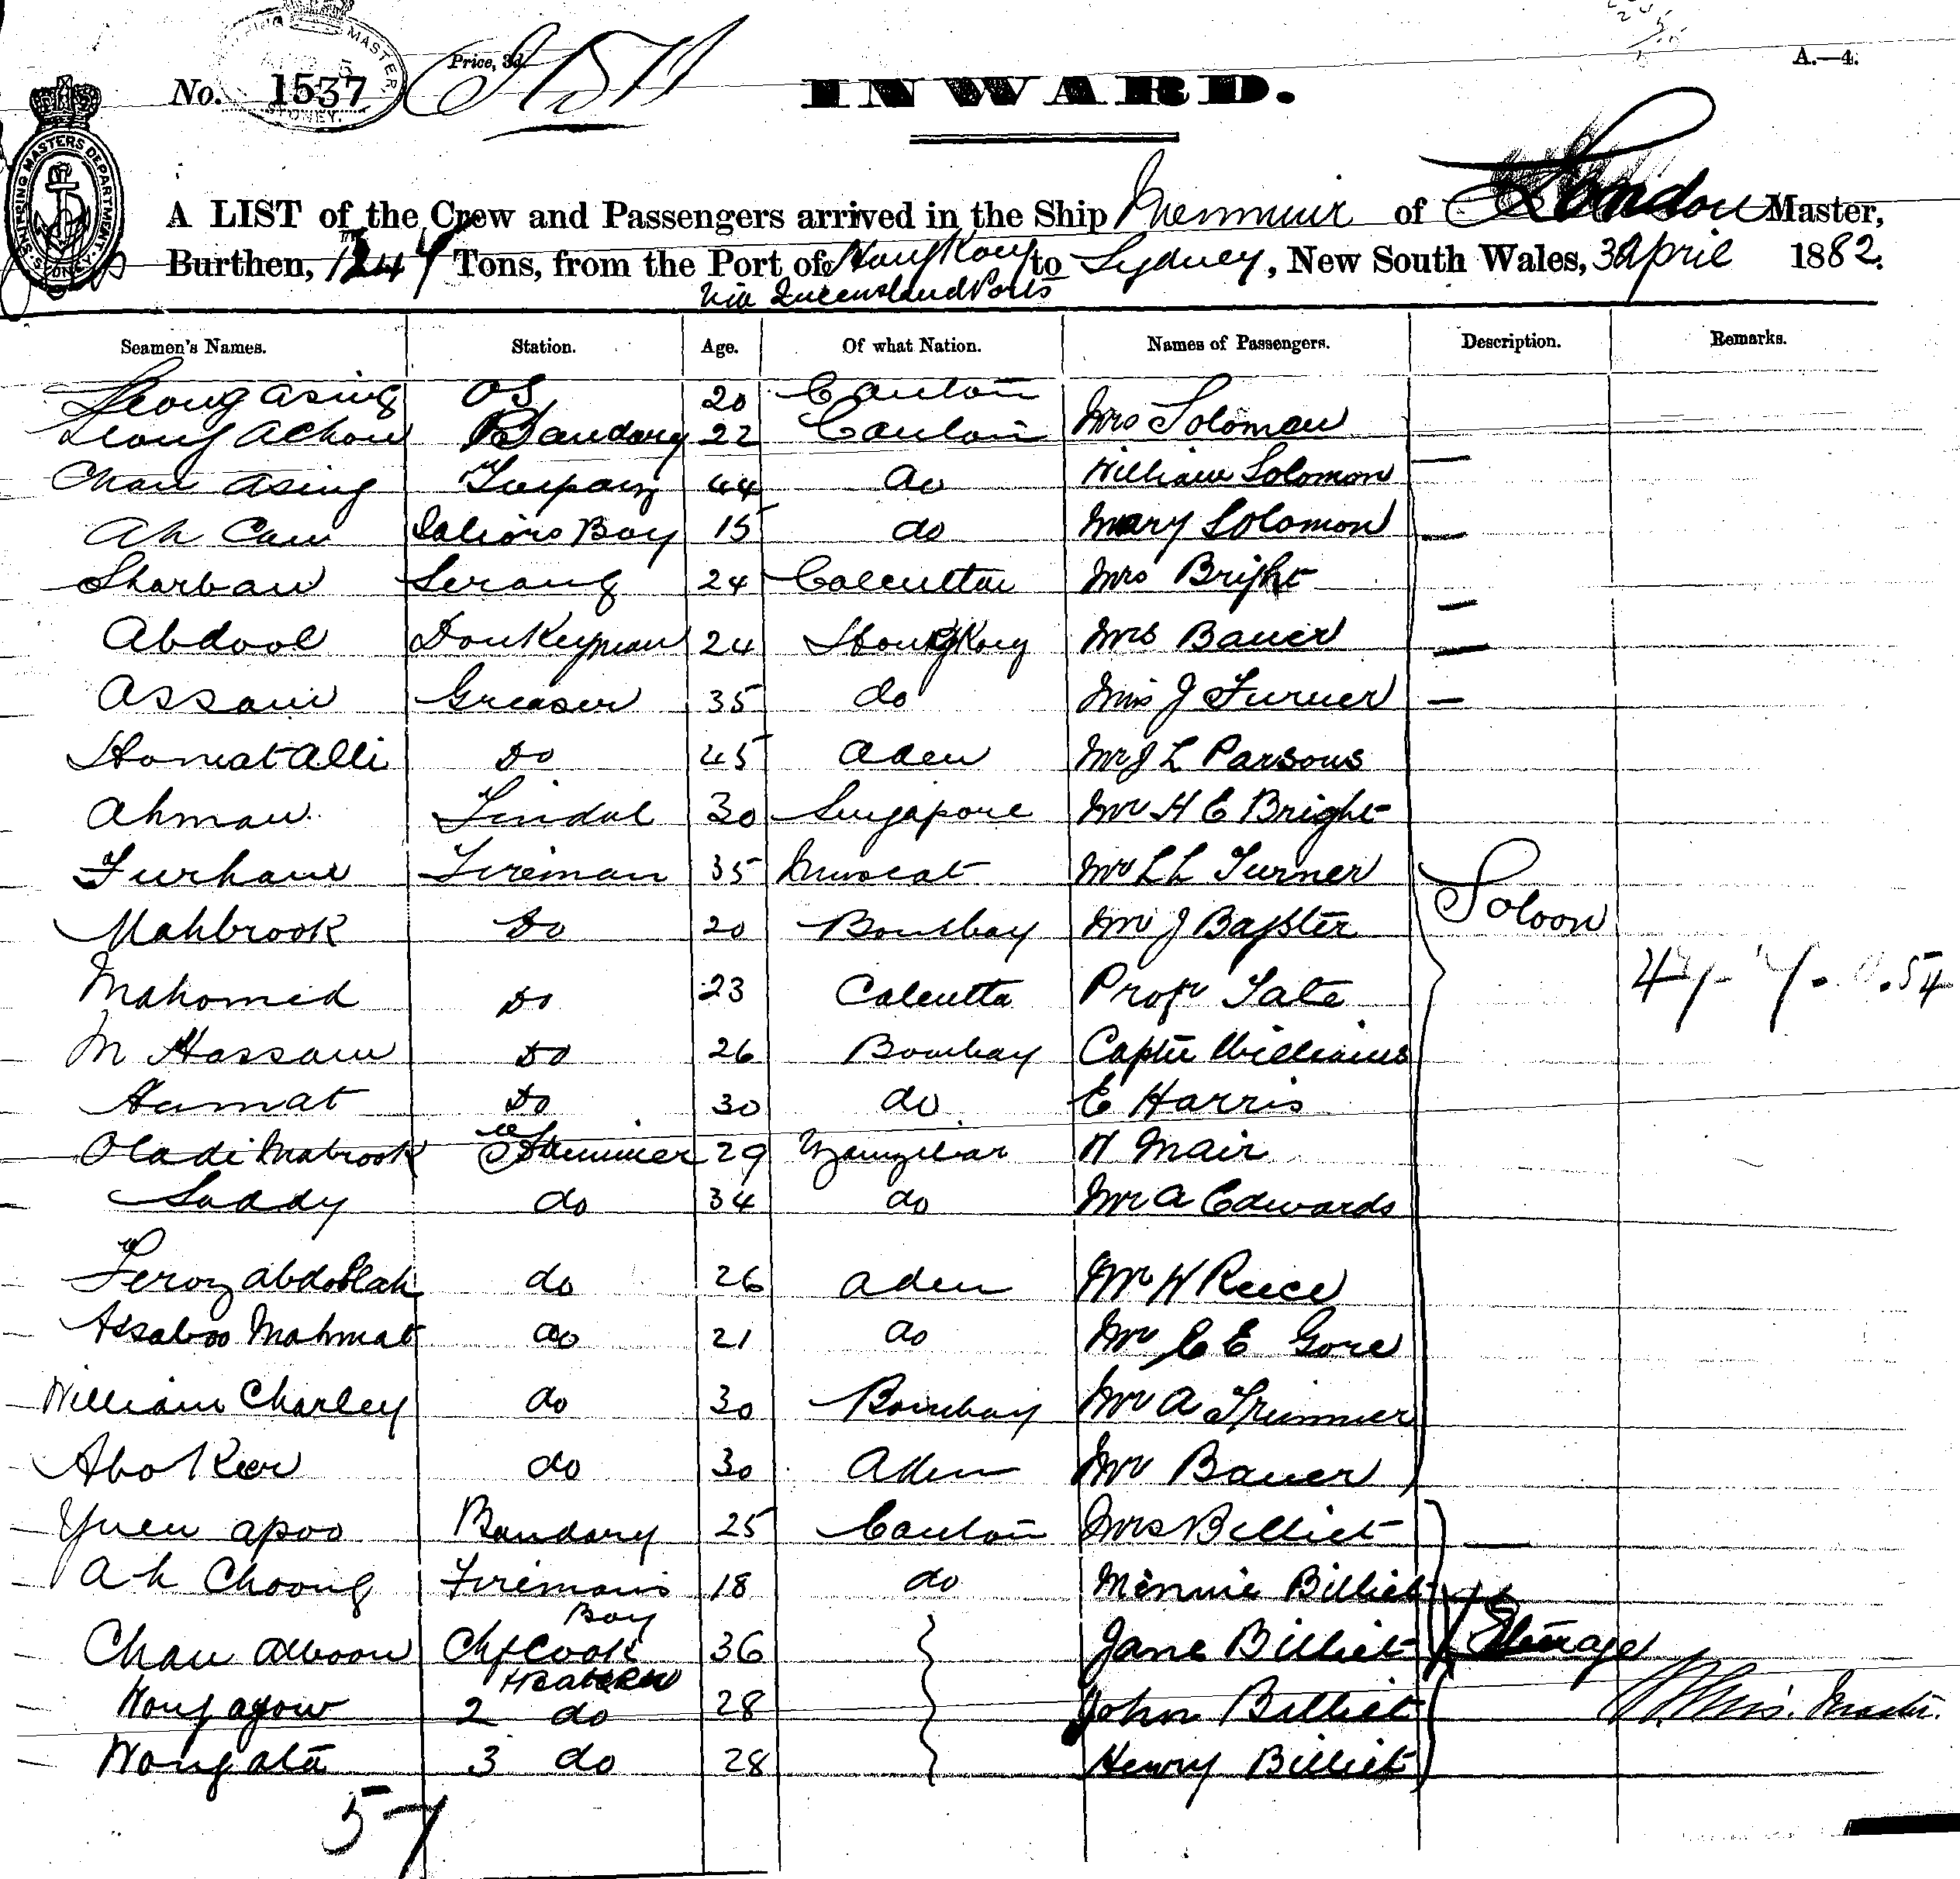 No. 1537
Price, 3d.
INWARD.
A.—4.
SHIPPING MASTERS DEPARTMENT SYDNEY
A LIST of the Crew and Passengers arrived in the Ship Menmuir of London Master,
Burthen, 1247 Tons, from the Port of Hong Kong to Sydney, New South Wales, 3 April 1882.
Via Queensland Ports
Seamen's Names. Station. Age. Of what Nation. Names of Passengers. Description. Remarks.
Leong asing OS 20 Canton
Leong Achow Bandary 22 Canton Mrs Solomon
Chan Asing 44 do William Solomon
Ah Cam Sailors Boy 15 do Mary Solomon
Sharban Serang 24 Calcutta Mrs Bright
Abdool Donkeyman 24 Hong Kong Mrs Bauer
Assam Greaser 35 do Miss J Turner
Homat Alli Do 45 Aden Mr J L Parsons
Ahman Tindal 30 Singapore Mr H E Bright
Furhane Fireman 35 Muscat Mr L L Turner
Mahbrook Do 20 Bombay Mr J Baxter Saloon
Mahomed Do 23 Calcutta Profr Tate
M Hassam Do 26 Bombay Captn Williams
Hamat Do 30 do E Harris
Oladi Mabrook Trimmer 29 Zanzibar H Mair
Saddy do 34 do Mr A Edwards
Feroz Abdollah do 26 Aden Mr H Reece
Assaboo Mahmat do 21 do Mr C E Gore
William Charley do 30 Bombay Mr A Trimmer
Abo Ker do 30 Aden Mr Bauer
Yuen apoo Bandary 25 Canton Mrs Billiet
Ah Choong Firemans Boy 18 do Minnie Billiet
Chan Aboon Chf Cook 36 Jane Billiet Steerage
Wong agow 2 do 28 John Billiet
Wong ata 3 do 28 Henry Billiet
Master.
57